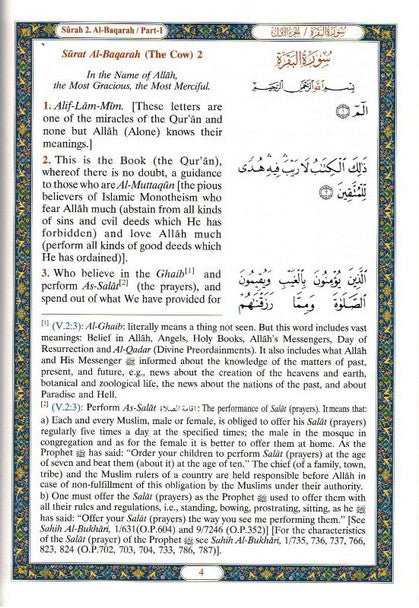 Sûrah 2. Al-Baqarah / Part-1
سُورَةُ البَقَرَة / الجزء الأول
Sûrat Al-Baqarah (The Cow) 2
سُورَةُ البَقَرَةِ
In the Name of Allâh,
the Most Gracious, the Most Merciful.
بِسْمِ اللَّهِ الرَّحْمَٰنِ الرَّحِيمِ
1. Alif-Lâm-Mîm. [These letters are
one of the miracles of the Qur'ân and
none but Allâh (Alone) knows their
meanings.]
الٓمٓ ١
2. This is the Book (the Qur'ân),
whereof there is no doubt, a guidance
to those who are Al-Muttaqûn [the pious
believers of Islamic Monotheism who
fear Allâh much (abstain from all kinds
of sins and evil deeds which He has
forbidden) and love Allâh much
(perform all kinds of good deeds which
He has ordained)].
ذَٰلِكَ ٱلْكِتَٰبُ لَا رَيْبَ ۛ فِيهِ ۛ هُدًى
لِّلْمُتَّقِينَ ٢
3. Who believe in the Ghaib[1] and
perform As-Salât[2] (the prayers), and
spend out of what We have provided for
ٱلَّذِينَ يُؤْمِنُونَ بِٱلْغَيْبِ وَيُقِيمُونَ
ٱلصَّلَوٰةَ وَمِمَّا رَزَقْنَٰهُمْ
[1] (V.2:3): Al-Ghaib: literally means a thing not seen. But this word includes vast
meanings: Belief in Allâh, Angels, Holy Books, Allâh's Messengers, Day of
Resurrection and Al-Qadar (Divine Preordainments). It also includes what Allâh
and His Messenger ﷺ informed about the knowledge of the matters of past,
present, and future, e.g., news about the creation of the heavens and earth,
botanical and zoological life, the news about the nations of the past, and about
Paradise and Hell.
[2] (V.2:3): Perform As-Salât إقامة الصلاة : The performance of Salât (prayers). It means that:
a) Each and every Muslim, male or female, is obliged to offer his Salât (prayers)
regularly five times a day at the specified times; the male in the mosque in
congregation and as for the female it is better to offer them at home. As the
Prophet ﷺ has said: "Order your children to perform Salât (prayers) at the age
of seven and beat them (about it) at the age of ten." The chief (of a family, town,
tribe) and the Muslim rulers of a country are held responsible before Allâh in
case of non-fulfillment of this obligation by the Muslims under their authority.
b) One must offer the Salât (prayers) as the Prophet ﷺ used to offer them with
all their rules and regulations, i.e., standing, bowing, prostrating, sitting, as he ﷺ
has said: "Offer your Salât (prayers) the way you see me performing them." [See
Sahih Al-Bukhâri, 1/631(O.P.604) and 9/7246 (O.P.352)] [For the characteristics
of the Salât (prayer) of the Prophet ﷺ see Sahih Al-Bukhâri, 1/735, 736, 737, 766,
823, 824 (O.P.702, 703, 704, 733, 786, 787)].
4